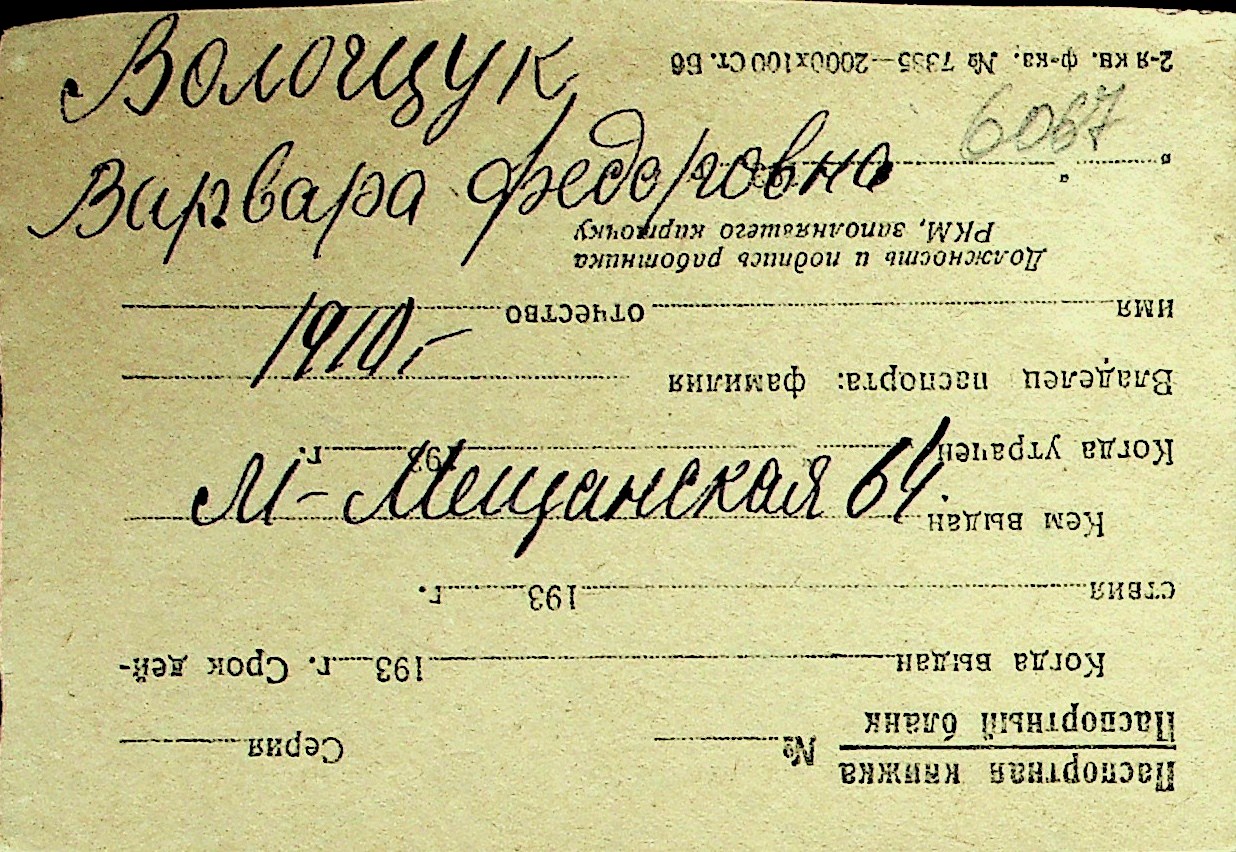 Волощук
6067
Варвара Федоровна
1910 г
М-Мещанская 64.
Паспортная книжка
Паспортный бланк № Серия
Когда выдан 193 г. Срок дей-
ствия 193 г.
Кем выдан
Когда утрачен 193 г.
Владелец паспорта: фамилия
имя отчество
Должность и подпись работника
РКМ, заполнявшего карточку
2-я кв. ф-ка. № 7335—2000х100 Ст. Бб